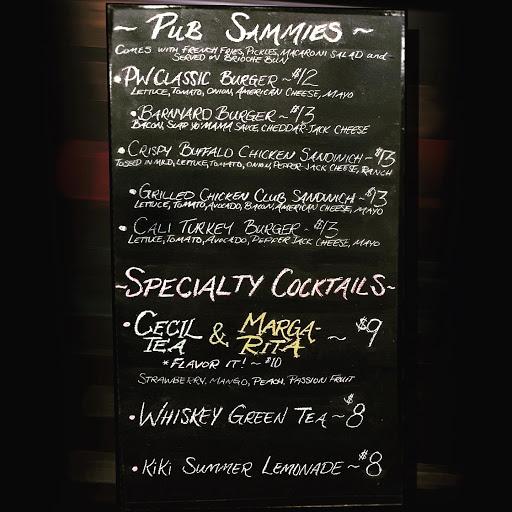 ~ Pub Sammies ~
Comes with French Fries, Pickles, Macaroni Salad and
Served on Brioche Bun
• PW Classic Burger ~ $12
Lettuce, Tomato, Onion, American Cheese, Mayo
• Barnyard Burger ~ $13
Bacon, Slap Yo Mama Sauce, Cheddar-Jack Cheese
• Crispy Buffalo Chicken Sandwich ~ $13
Tossed in Mild, Lettuce, Tomato, Onion, Pepper-Jack Cheese, Ranch
• Grilled Chicken Club Sandwich ~ $13
Lettuce, Tomato, Avocado, Bacon, American Cheese, Mayo
• Cali Turkey Burger ~ $13
Lettuce, Tomato, Avocado, Pepper Jack Cheese, Mayo
~ Specialty Cocktails ~
• Cecil Tea & Marga-Rita ~ $9
* Flavor It! ~ $10
Strawberry, Mango, Peach, Passion Fruit
• Whiskey Green Tea ~ $8
• KiKi Summer Lemonade ~ $8